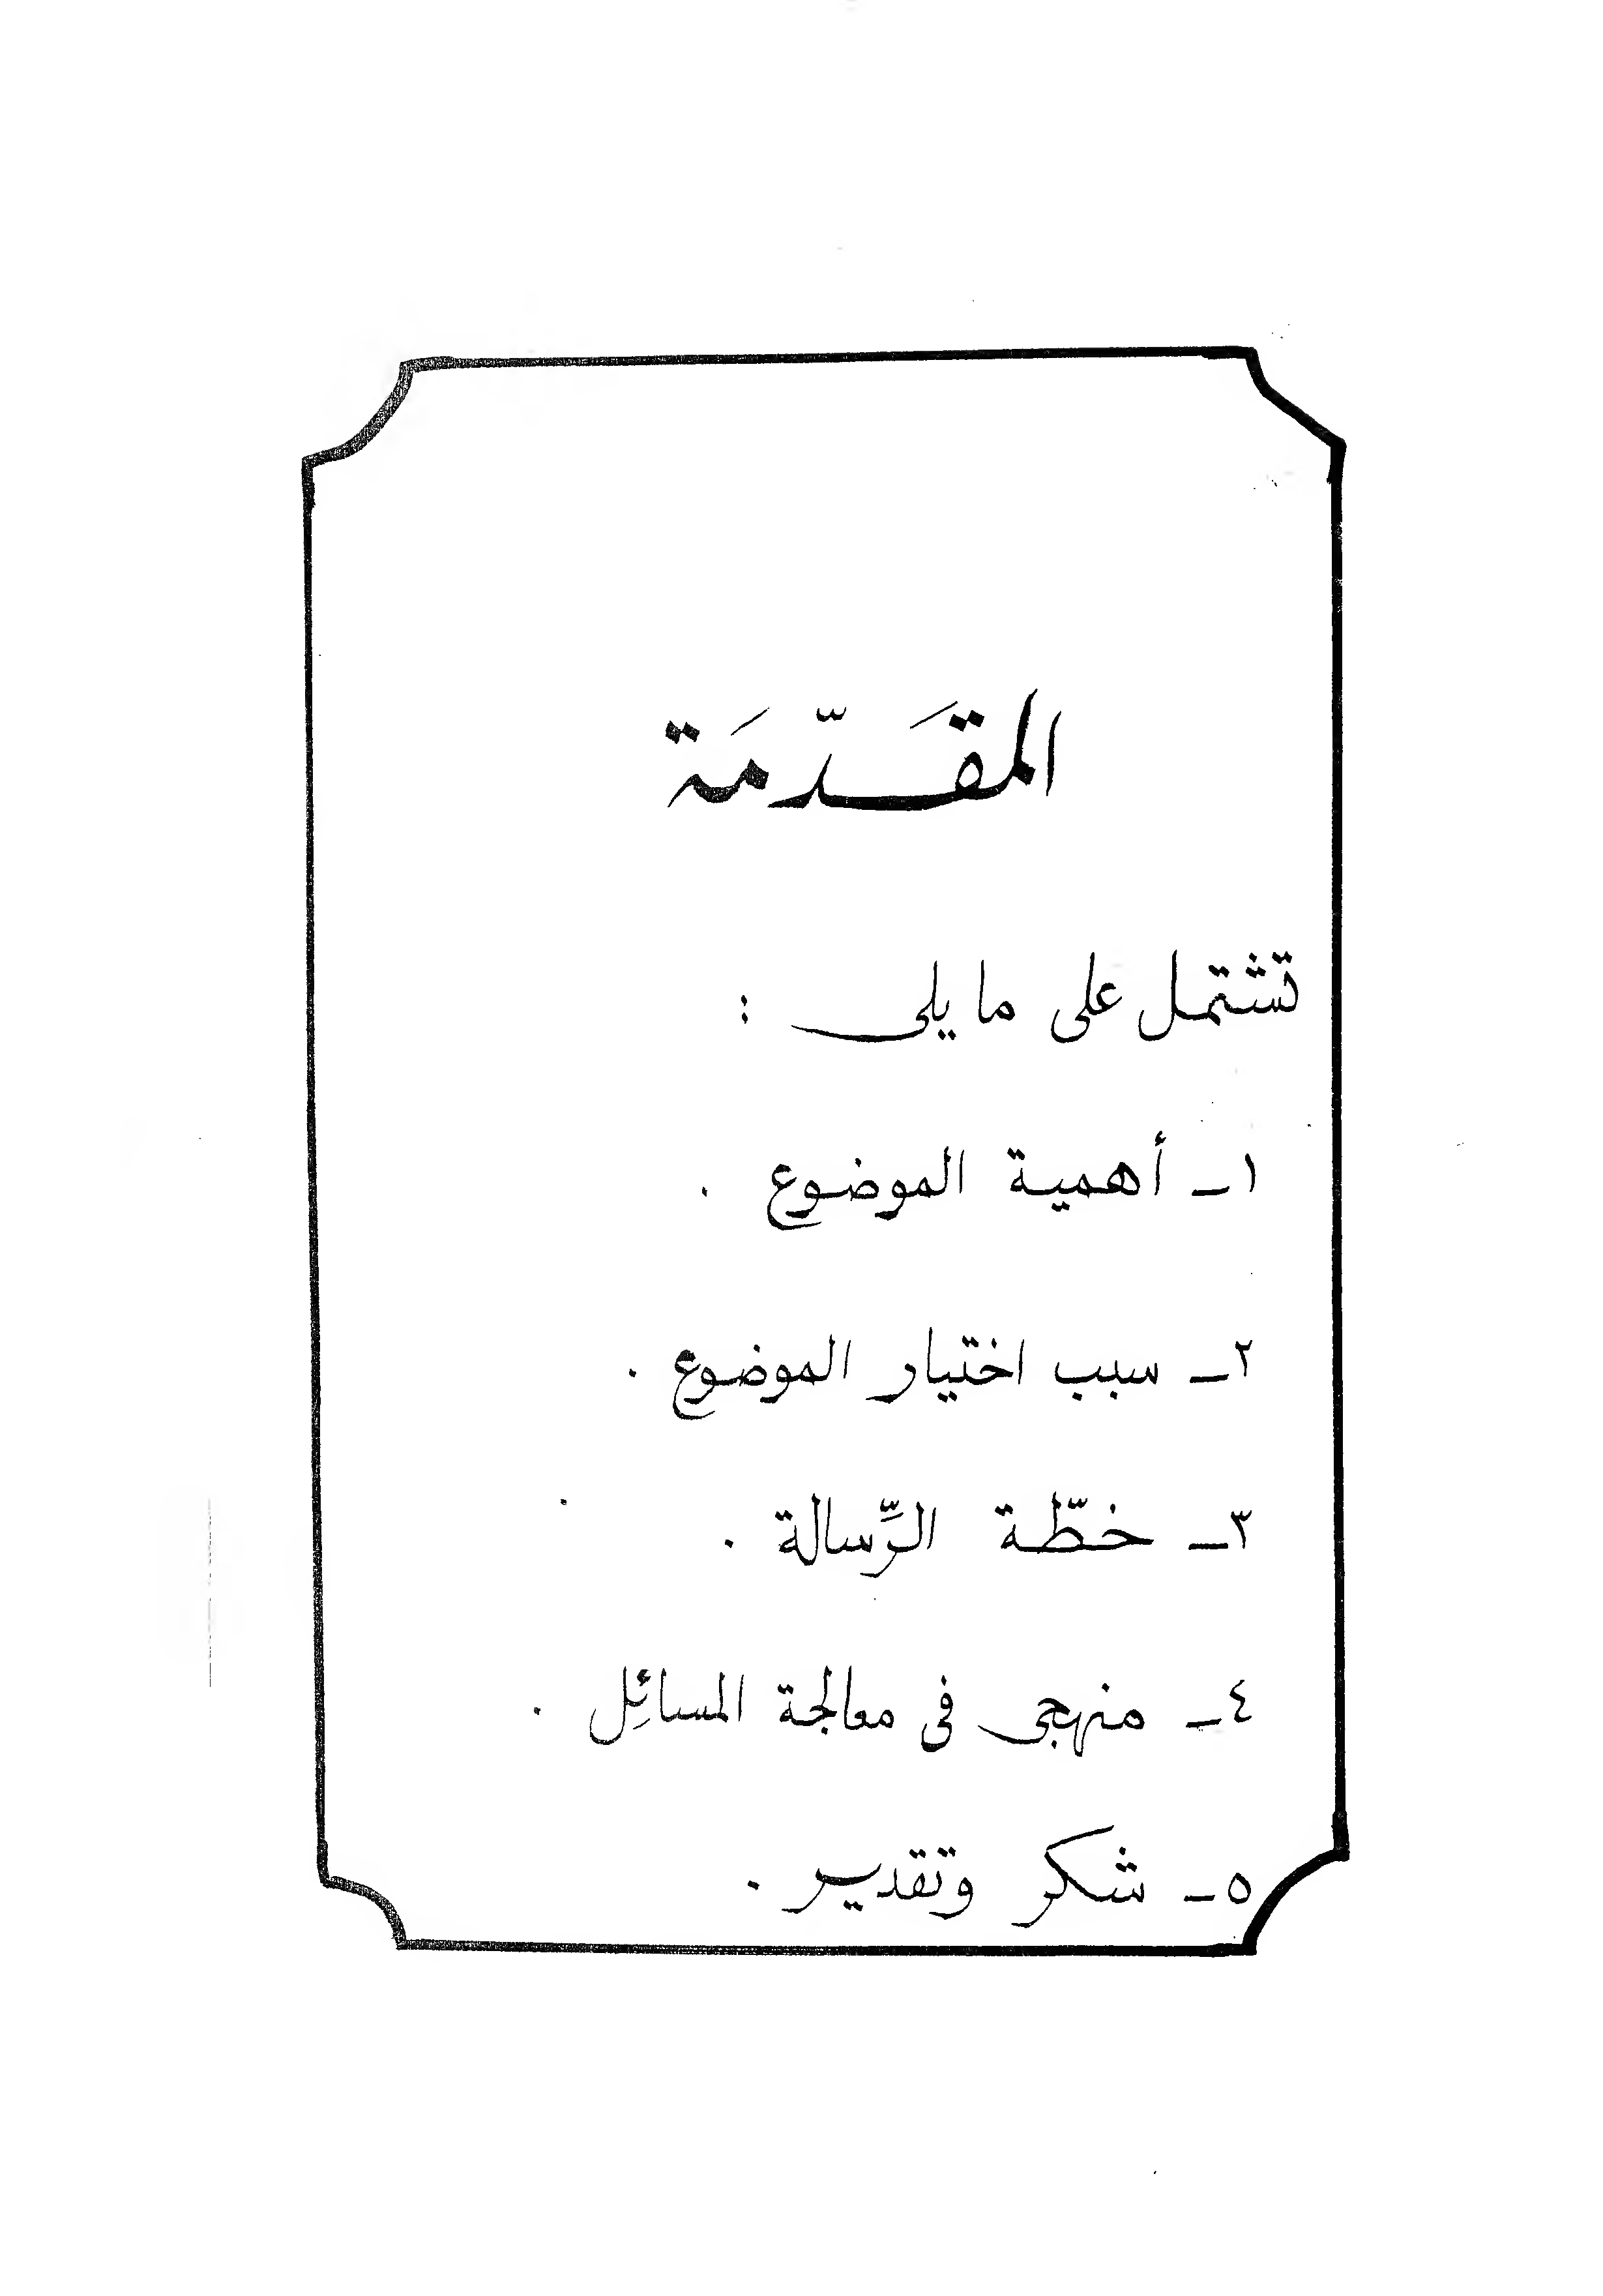 المقَدّمَة
تشتمل على ما يلى :
١ـ أهمية الموضوع .
٢ـ سبب اختيار الموضوع .
٣ـ خطّة الرِّسالة .
٤ـ منهجى فى معالجة المسائِل .
٥ـ شكر وتقدير .